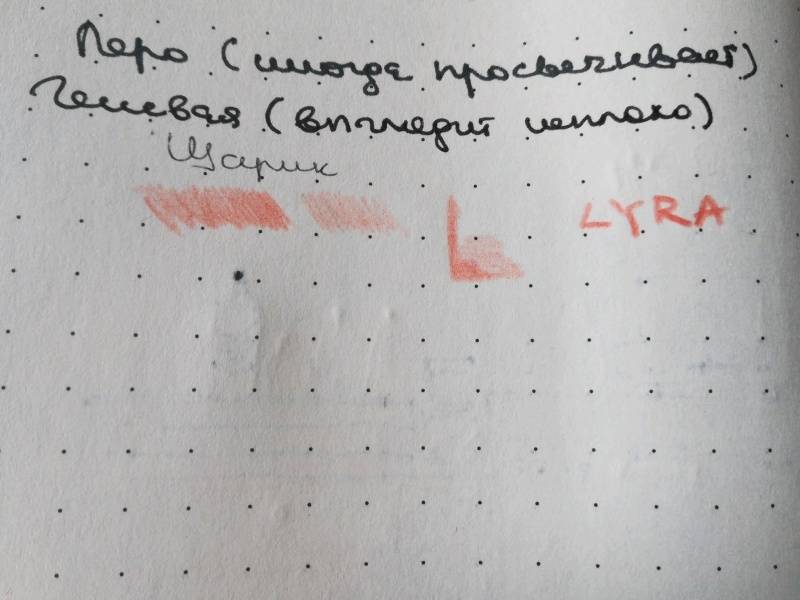 Перо (иногда просвечивает)
Гелевая (выглядит неплохо)
Шарик
LYRA